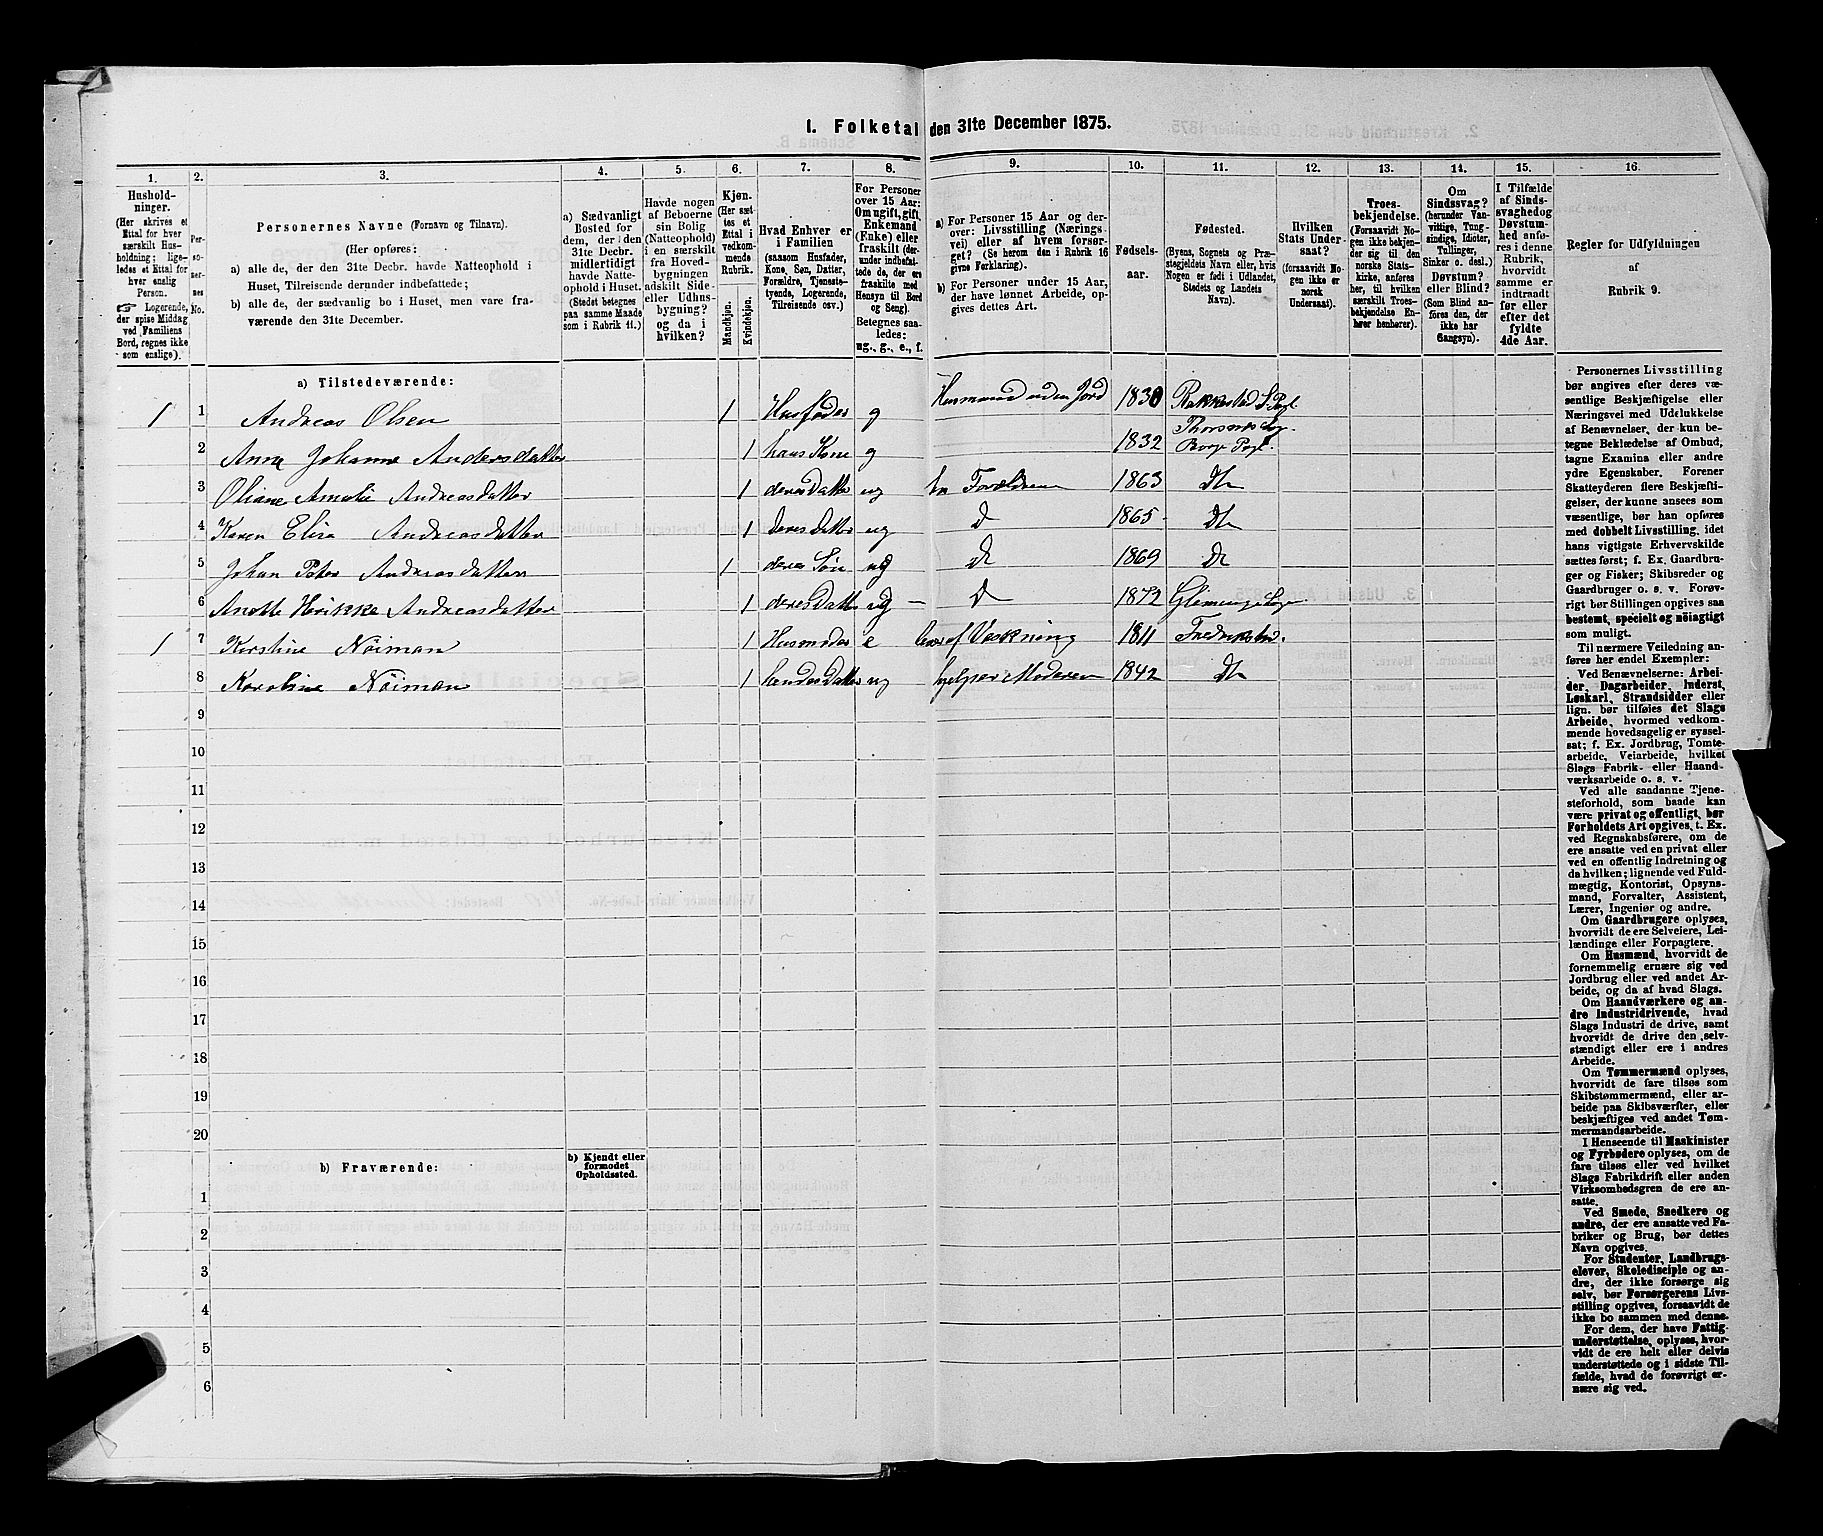 I. Folketal den 31te December 1875.
1. 2. 3. 4. 5. 6. 7. 8. 9. 10. 11. 12. 13. 14. 15. 16.
Hushold-
ninger.
(Her skrives et
Ettal for hver
særskilt Hus-
holdning; lige-
ledes et Ettal for
hver enslig
Person.
☞ Logerende,
der spise Middag
ved Familiens
Bord, regnes ikke
som enslige).
Per-
so-
ner-
nes
No.
Personernes Navne (Fornavn og Tilnavn).
(Her opføres:
a) alle de, der den 31te Decbr. havde Natteophold i
Huset, Tilreisende derunder indbefattede;
b) alle de, der sædvanlig bo i Huset, men vare fra-
værende den 31te December.
a) Sædvanligt
Bosted for
dem, der den
31te Decbr.
midlertidigt
havde Natte-
ophold i Huset.
(Stedet betegnes
paa samme Maade
som i Rubrik 11.)
Havde nogen
af Beboerne
sin Bolig
(Natteophold)
i en særskilt
fra Hoved-
bygningen
adskilt Side-
eller Udhus-
bygning?
og da i
hvilken?
Kjøn.
(Her sæt-
tes et
Ettal i
vedkom-
mende
Rubrik.
Mandkjøn.
Kvindekjøn.
Hvad Enhver er
i Familien
(saasom Husfader,
Kone, Søn, Datter,
Forældre, Tjeneste-
tyende, Logerende,
Tilreisende osv.)
For Personer
over 15 Aar:
Om ugift, gift,
Enkemand
(Enke) eller
fraskilt (der-
under indbefat-
tede de, der ere
fraskilte med
Hensyn til Bord
og Seng).
Betegnes saa-
ledes:
ug., g., e., f.
a) For Personer 15 Aar og der-
over: Livsstilling (Nærings-
vei) eller af hvem forsør-
get? (Se herom den i Rubrik 16
givne Forklaring).
b) For Personer under 15 Aar,
der have lønnet Arbeide, op-
gives dettes Art.
Fødsels-
aar.
Fødested.
(Byens, Sognets og Præ-
stegjeldets Navn eller, hvis
Nogen er født i Udlandet,
Stedets og Landets
Navn).
Hvilken
Stats Under-
saat?
(forsaavidt No-
gen ikke er
norsk
Undersaat).
Troes-
bekjendelse.
(Forsaavidt No-
gen ikke bekjen-
der sig til den
norske Stats-
kirke, anføres
her, til hvilken
særskilt Troes-
bekjendelse En-
hver henhører).
Om
Sindssvag?
(herunder Van-
vittige, Tung-
sindige, Idioter,
Tullinger,
Sinker o. desl.)
Døvstum?
eller Blind?
(Som Blind an-
føres den, der
ikke har
Gangsyn).
I Tilfælde
af Sinds-
svaghed og
Døvstum-
hed anfø-
res i denne
Rubrik,
hvorvidt
samme er
indtraadt
før eller
efter det
fyldte
4de Aar.
Regler for Udfyldningen
af
Rubrik 9.
a) Tilstedeværende:
1 1 Andreas Olsen 1 Husfader g Husmand uden Jord 1830 Rakkestad S. Pgl.
2 Anna Johanne Andersdatter 1 hans Kone g 1832 Thorsnes Sog. Borge Pgl.
3 Oliane Amalie Andreasdatter 1 deres Datter ug 1863 Do
4 Karen Elisa Andreasdatter 1 deres datter ug Do 1865 Do
5 Johan Peter Andreasdatter 1 deres Søn ug Do 1869 Do
6 Anette Henrikke Andreasdatter 1 deres Datter ug Do 1872 Glemminge Sogn
1 7 Kirstine Nöiman 1 Husmoder e lever af Vaskning 1811 Fredrikstad.
8 Karoline Nöiman 1 hendes Datter ug hjelper Moderen 1842 Do
9
10
11
12
13
14
15
16
17
18
19
20
b) Fraværende:
b) Kjendt eller
formodet
Opholdssted.
1
2
3
4
5
6
Personernes Livsstilling
bør angives efter deres væ-
sentlige Beskjæftigelse eller
Næringsvei med Udelukkelse
af Benævnelser, der kun be-
tegne Beklædelse af Ombud,
tagne Examina eller andre
ydre Egenskaber. Forener
Skatteyderen flere Beskjæfti-
gelser, der kunne ansees som
væsentlige, bør han opføres
med dobbelt Livsstilling, idet
hans vigtigste Erhvervskilde
sættes først; f. Ex. Gaardbru-
ger og Fisker; Skibsreder og
Gaardbruger o. s. v. Forøv-
rigt bør Stillingen opgives saa
bestemt, specielt og nøiagtigt
som muligt.
Til nærmere Veiledning an-
føres her endel Exempler:
Ved Benævnelserne: Arbei-
der, Dagarbeider, Inderst,
Løskarl, Strandsidder eller
lign. bør tilføies det Slags
Arbeide, hvormed vedkom-
mende hovedsagelig er syssel-
sat; f. Ex. Jordbrug, Tomte-
arbeide, Veiarbeide, hvilket
Slags Fabrik- eller Haand-
værksarbeide o. s. v.
Ved alle saadanne Tjene-
steforhold, som baade kan
være privat og offentligt, bør
Forholdets Art opgives, t. Ex.
ved Regnskabsførere, om de
ere ansatte ved en privat eller
ved en offentlig Indretning og
da hvilken; lignende ved Fuld-
mægtig, Kontorist, Opsyns-
mand, Forvalter, Assistent,
Lærer, Ingeniør og andre.
Om Gaardbrugere oplyses,
hvorvidt de ere Selveiere, Lei-
lændinge eller Forpagtere.
Om Husmænd, hvorvidt de
fornemmelig ernære sig ved
Jordbrug eller ved andet Ar-
beide, og da af hvad Slags.
Om Haandværkere og an-
dre Industridrivende, hvad
Slags Industri de drive, samt
hvorvidt de drive den selv-
stændigt eller ere i andres
Arbeide.
Om Tømmermænd oplyses,
hvorvidt de fare tilsøs som
Skibstømmermænd, eller ar-
beide paa Skibsværfter, eller
beskjæftiges ved andet Tøm-
mermandsarbeide.
I Henseende til Maskinister
og Fyrbødere oplyses, om de
fare tilsøs eller ved hvilket
Slags Fabrikdrift eller anden
Virksomhedsgren de ere an-
satte.
Ved Smede, Snedkere og
andre, der ere ansatte ved Fa-
briker og Brug, bør dettes
Navn opgives.
For Studenter, Landbrugs-
elever, Skoledisciple og an-
dre, der ikke forsørge sig
selv, bør Forsørgerens Livs-
stilling opgives, forsaavidt de
ikke bo sammen med denne.
For dem, der have Fattig-
understøttelse, oplyses, hvor-
vidt de ere helt eller delvis
understøttede og i sidste Til-
fælde, hvad de forøvrigt er-
nære sig ved.